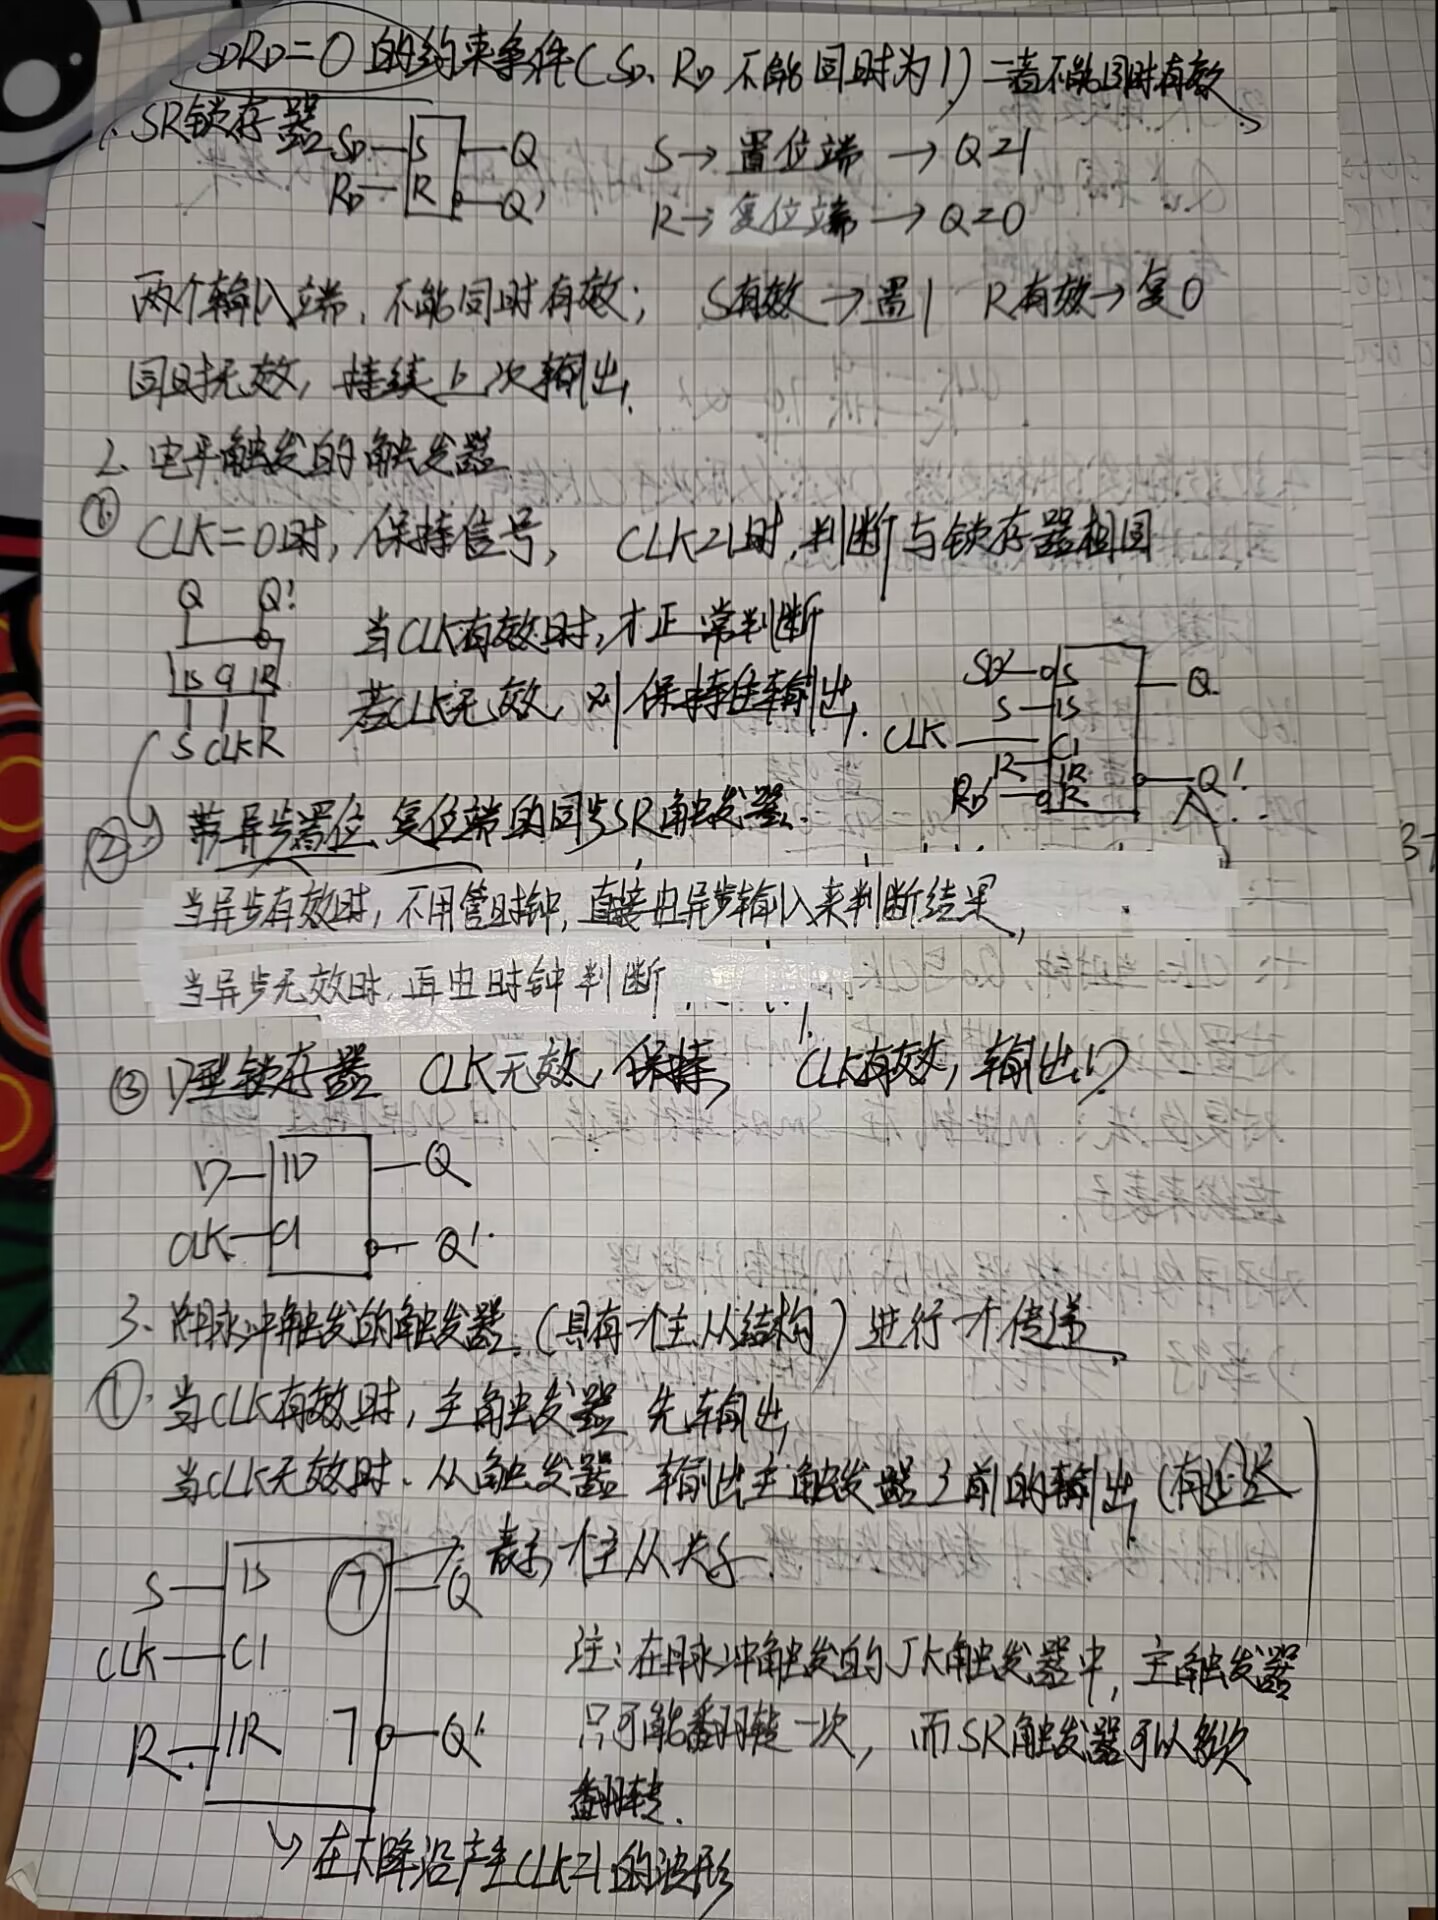 SDRD=0的约束条件(SD、RD不能同时为1)二者不能同时有效
1、SR锁存器
SD S Q S→置位端→Q=1
RD R Q' R→复位端→Q=0
两个输入端,不能同时有效; S有效→置1 R有效→复0
同时无效,持续上次输出.
2、电平触发的触发器
① CLK=0时,保持信号, CLK=1时,判断与锁存器相同
Q Q'
当CLK有效时,才正常判断
1S C1 1R
若CLK无效,则保持住输出.
S CLK R
SD' S Q
S 1S
CLK C1
R 1R Q'
RD' R
② 带异步置位、复位端的同步SR触发器.
当异步有效时,不用管时钟,直接由异步输入来判断结果,
当异步无效时,再由时钟判断
③ D型锁存器 CLK无效,保持, CLK有效,输出D
D 1D Q
CLK C1 Q'
3、脉冲触发的触发器.(具有一个主从结构)进行一个传递.
①.当CLK有效时,主触发器 先输出,
当CLK无效时、从触发器 输出主触发器之前的输出,(有延迟
表示一个主从关系
S 1S ┐ Q
CLK C1
R 1R ┐ Q'
注:在脉冲触发的JK触发器中,主触发器
只可能翻转一次,而SR触发器可以多次
翻转.
→在下降沿产生CLK=1的波形